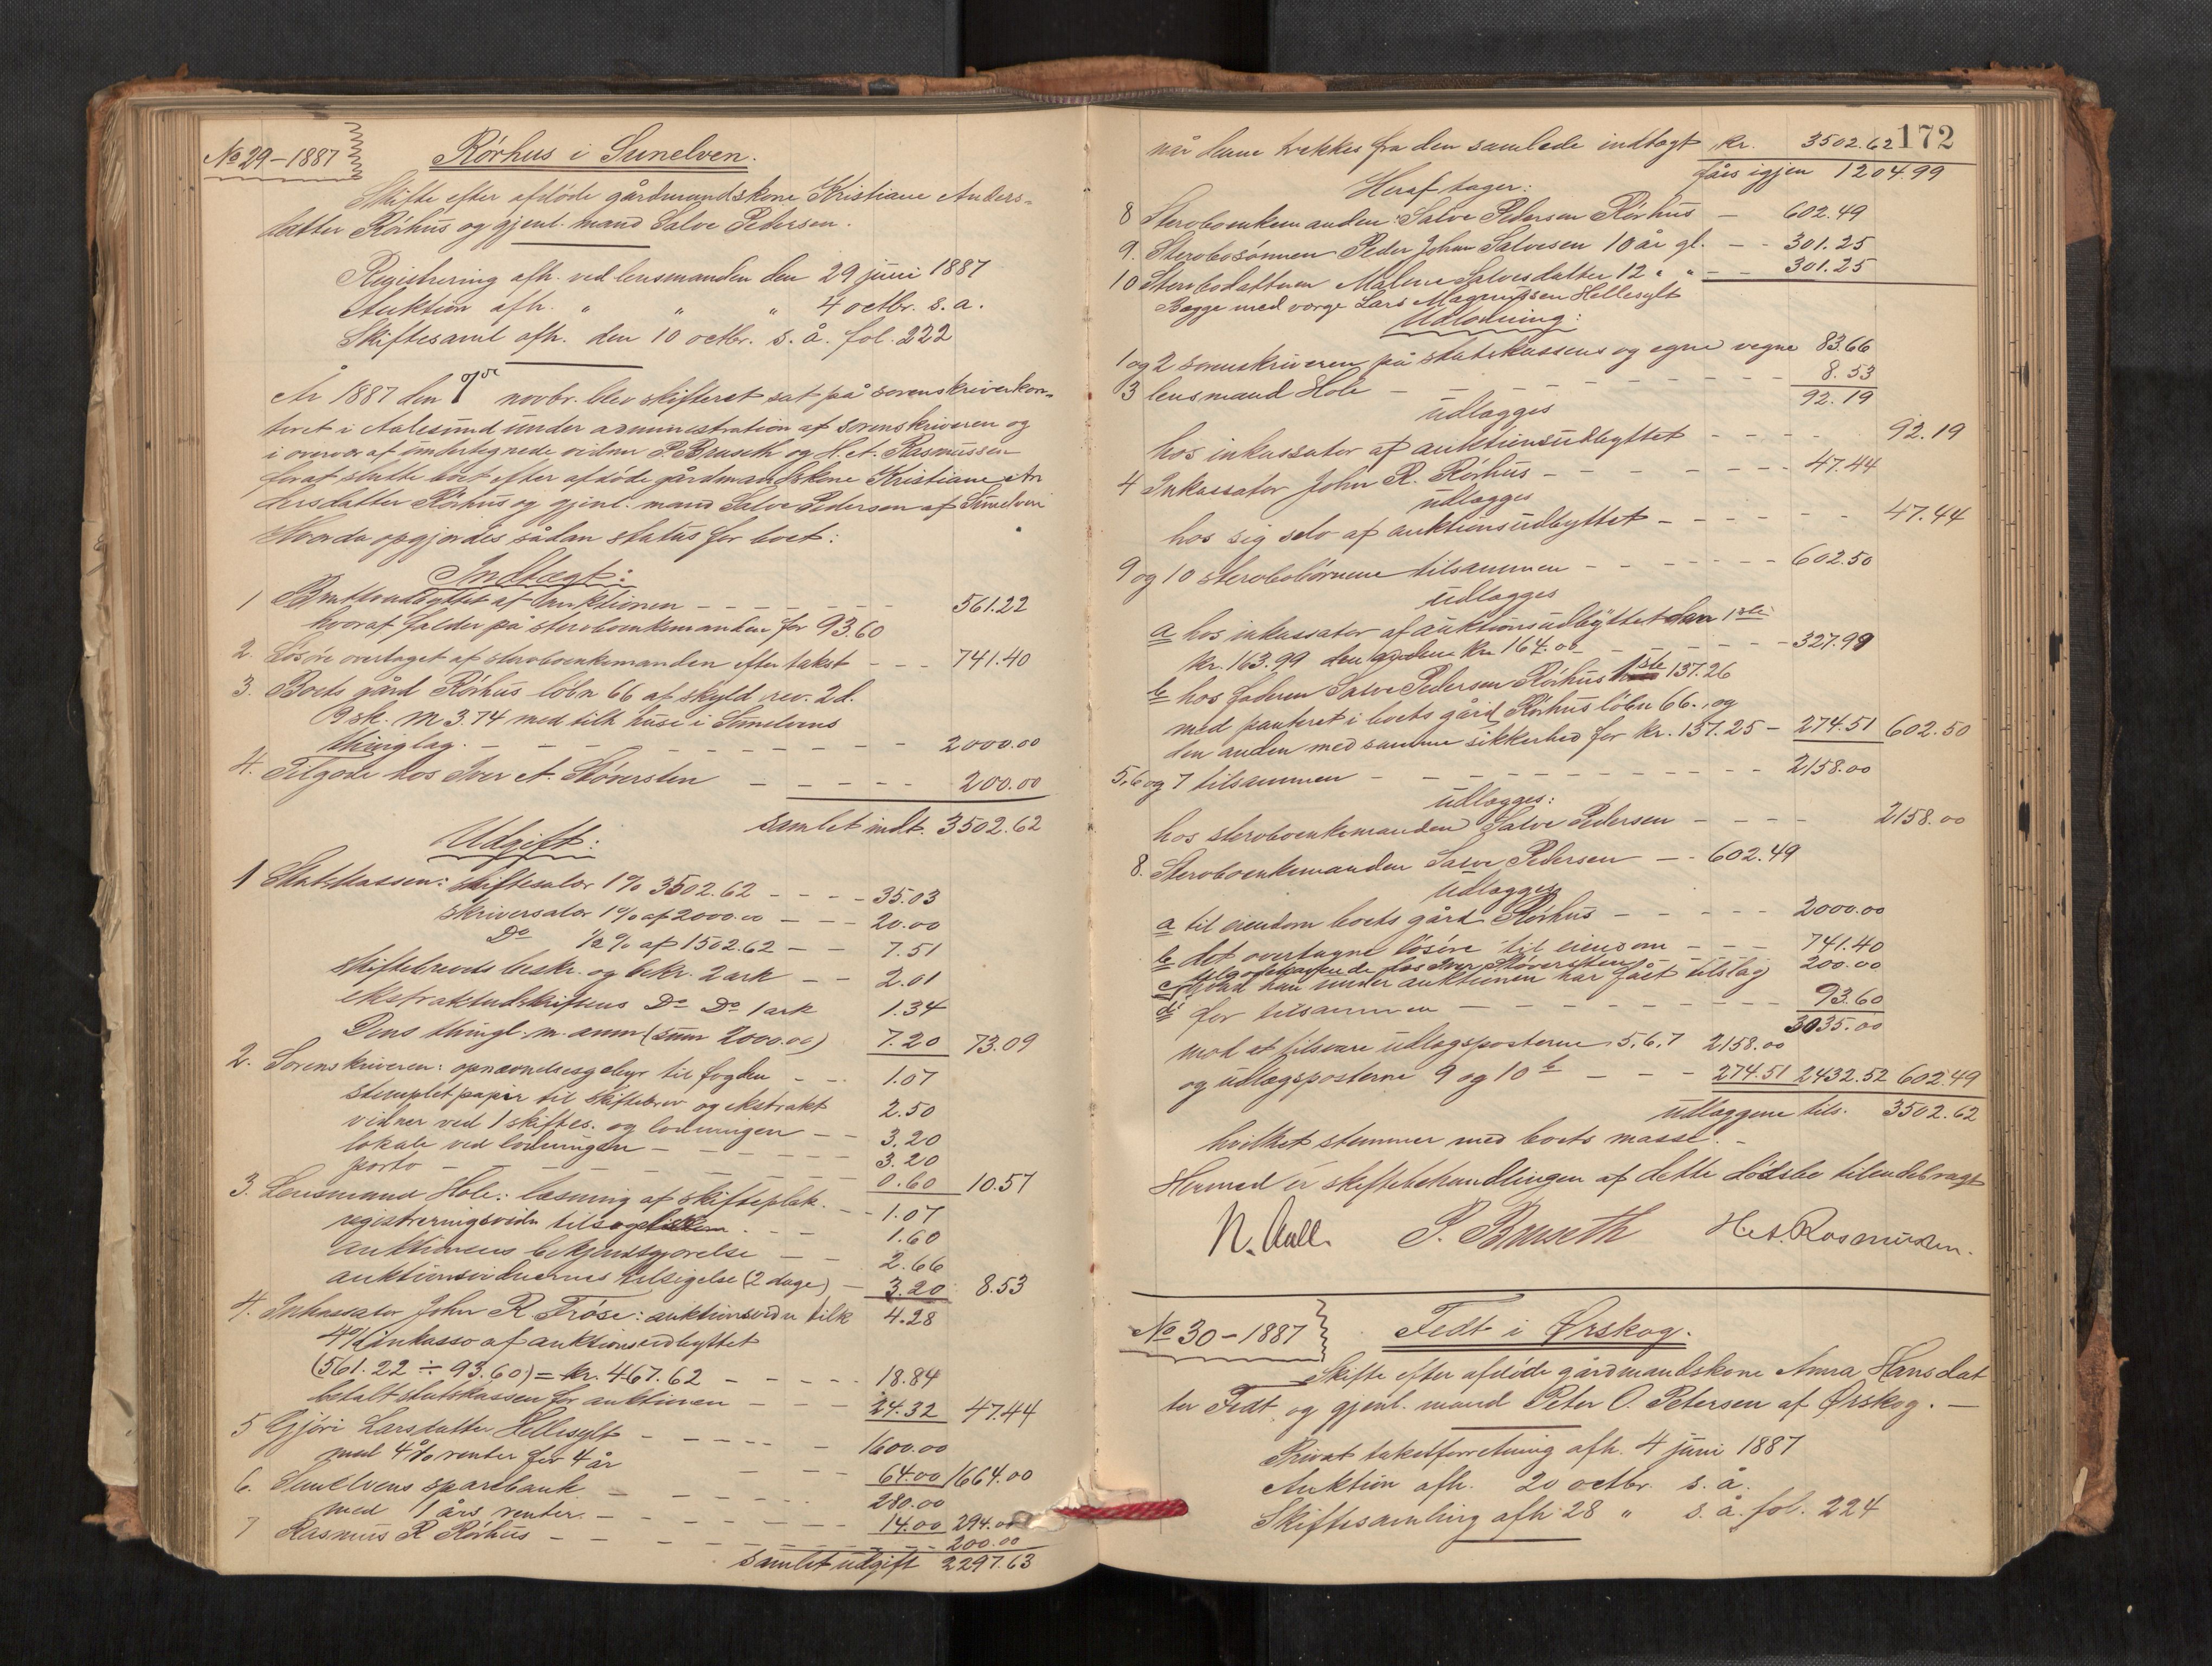 No 29-1887
Rørhus i Sunelven.
Skifte efter afdøde gårdmandskone Kristiane Anders-
datter Rørhus og gjenl. mand Salve Pedersen.
Registrering afh. ved lensmanden den 29 juni 1887
Auktion afh. " " " 4 octbr. s. a.
Skiftesaml afh. den 10 octbr. s. å. fol. 222
År 1887 den 7de novbr. blev skifteret sat på sorenskriverkon-
toret i Aalesund under administration af sorenskriveren og
i overvær af undertegnede vidner P. Bruseth og H. A. Rasmussen
for at slutte boet efter afdøde gårdmandskone Kristiane An
dersdatter Rørhus og gjenl. mand Salve Pedersen af Sunelven
Hvorda opgjordes sådan status for boet:
Indtægt:
1 Bruttoudbyttet af auktionen - - - - - 561.22
hvoraf falder på sterboenkemanden for 93.60
2. Løsøre overtaget af sterboenkemanden efter takst - - - 741.40
3. Boets gård Rørhus løbn 66 af skyld rev. 2 d.
19 sk. M 3.74 med tilh. huse i Sunelvens
thinglag. - - - - - - - - 2000.00
4. Tilgode hos Iver A. Støversten - - - - - 200.00
samlet indt. 3502.62
Udgift:
1 Statskassen: skiftesalær 1% 3502.62 - - - - 35.03
skriversalær 1% af 2000.00 - - - 20.00
Do ½% af 1502.62 - - 7.51
skiftebrevets beskr. og bekr. 2 ark - - 2.01
ekstraktudskriftens Do Do 1 ark 1.34
Dens thingl. m. anm (sum 2000.00) 7.20 73.09
2. Sorenskriveren: opnævnelsesgebyr til fogden - - 1.07
stemplet papir til skiftebrev og ekstrakt 2.50
vidner ved 1 skiftes. og lodningen - - 3.20
lokale ved lodningen - - - - - - 3.20
porto - - - - - - - 0.60 10.57
3. Lensmand Hole: læsning af skifteplak. - - 1.07
registreringsvidn tilsigelse - - 1.60
auktionens bekjendtgjørelse - - 2.66
auktionsvidnernes tilsigelse (2 dage) - 3.20 8.53
4. Inkassator John R. Frøse: auktionsvidn tilk 4.28
4% inkasso af auktionsudbyttet
(561.22 ÷ 93.60) = kr. 467.62 - - - - - 18.84
betalt statskassen for auktionen - - - 24.32 47.44
5 Gjøri Larsdatter Hellesylt - - - - - 1600.00
med 4% renter for 4 år - - - 64.00 1664.00
6. Sunelvens sparebank - - - - - 280.00
med 1 års renter. - - - - - - 14.00 294.00
7 Rasmus R Rørhus - - - - - - - 200.00
samlet udgift 2297.63
172
når denne trækkes fra den samlede indtægt kr. 3502.62
fåes igjen 1204.99
Heraf tager:
8 Sterboenkemanden Salve Pedersen Rørhus - 602.49
9. Sterbosønnen Peder Johan Salvesen 10 år gl. - - 301.25
10 Sterbodatteren Malene Salvesdatter 12 " " - - 301.25
Begge med værge Lars Magnussen Hellesylt
Udlodning:
1 og 2 sorenskriveren på statskassens og egne vegne 83.66
3 lensmand Hole - - - - - - - - - 8.53
92.19
udlægges
hos inkassator af auktionsudbyttet - - - - - 92.19
4 Inkassator John R. Rørhus - - - - - - - 47.44
udlægges
hos sig selv af auktionsudbyttet - - - - - - 47.44
9 og 10 sterbobørnene tilsammen - - - - - - - 602.50
udlægges
a hos inkassator af auktionsudbyttet den 1ste
kr. 163.99 den anden kr 164.00 - - - - - 327.99
b hos faderen Salve Pedersen Rørhus 1ste 137.26
med panteret i boets gård Rørhus løbn 66., og
den anden med samme sikkerhed for kr. 137.25 - 274.51 602.50
5, 6 og 7 tilsammen - - - - - - - - 2158.00
udlægges:
hos sterboenkemanden Salve Pedersen - - - - 2158.00
8. Sterboenkemanden Salve Pedersen - - 602.49
udlægges
a til eiendom boets gård Rørhus - - - - - 2000.00
b det overtagne løsøre til eiendom - - - 741.40
c tilgodehavende hos Iver Støversten 200.00
d hvad han under auktionen har fået tilslag
for tilsammen - - - - - - - 93.60
3035.00
mod at tilsvare udlægsposterne 5, 6, 7 2158.00
og udlægsposterne 9 og 10 b - - - 274.51 2432.52 602.49
udlæggene tils. 3502.62
hvilket stemmer med boets masse. -
Hermed er skiftebehandlingen af dette dødsbo tilendebragt
N. Aall. P. Bruseth H. A. Rasmussen.
No 30-1887
Fedt i Ørskog.
Skifte efter afdøde gårdmandskone Anna Hansdat
ter Fedt og gjenl. mand Peter O. Petersen af Ørskog. -
Privat takstforretning afh. 4 juni 1887
Auktion afh. 20 octbr. s. å.
Skiftesamling afh 28 " s. å. fol. 224